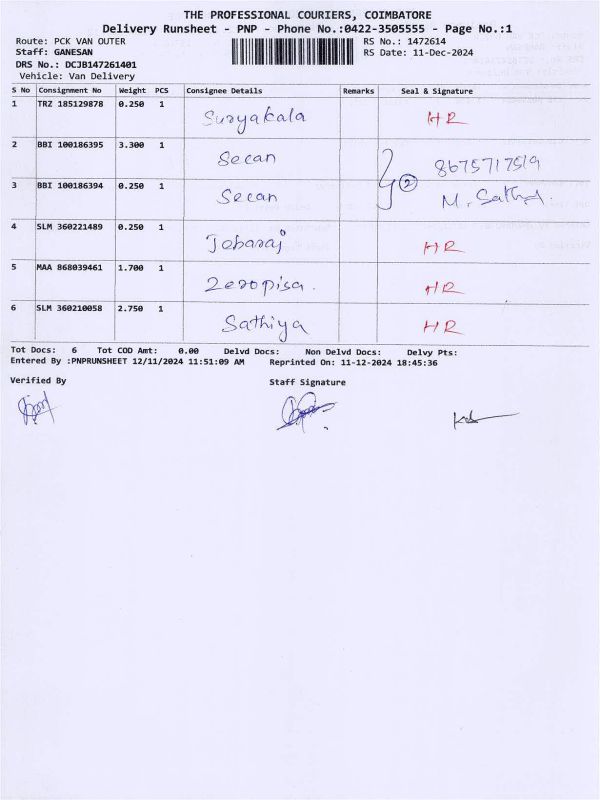 THE PROFESSIONAL COURIERS, COIMBATORE
Delivery Runsheet - PNP - Phone No.:0422-3505555 - Page No.:1
Route: PCK VAN OUTER RS No.: 1472614
Staff: GANESAN RS Date: 11-Dec-2024
DRS No.: DCJB147261401
Vehicle: Van Delivery
S No Consignment No Weight PCS Consignee Details Remarks Seal & Signature
1 TRZ 185129878 0.250 1 Suryakala HR
2 BBI 100186395 3.300 1 Secan 8675717519
3 BBI 100186394 0.250 1 Secan 2 M. Sathya
4 SLM 360221489 0.250 1 Jebaraj HR
5 MAA 868039461 1.700 1 Zeropisa. HR
6 SLM 360210058 2.750 1 Sathiya HR
Tot Docs: 6 Tot COD Amt: 0.00 Delvd Docs: Non Delvd Docs: Delvy Pts:
Entered By :PNPRUNSHEET 12/11/2024 11:51:09 AM Reprinted On: 11-12-2024 18:45:36
Verified By Staff Signature